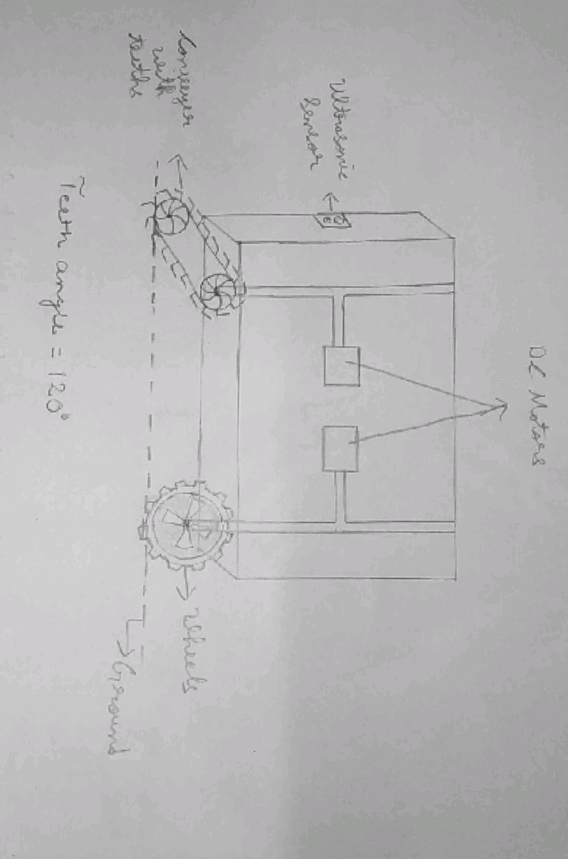 DC Motors
Ultrasonic
Sensor
Conveyer
with
teeths
Wheels
Ground
Teeth angle = 120°